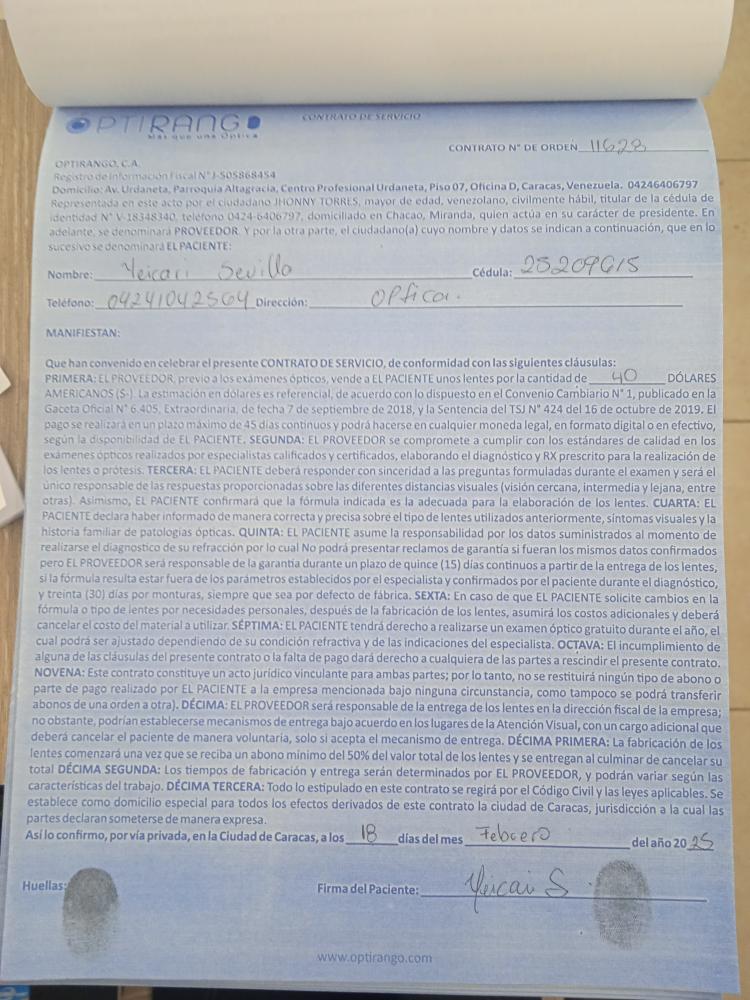 OPTIRANGO
Más que una Óptica
CONTRATO DE SERVICIO
CONTRATO N° DE ORDEN 11628
OPTIRANGO, C.A.
Registro de Información Fiscal N° J-505868454
Domicilio: Av. Urdaneta, Parroquia Altagracia, Centro Profesional Urdaneta, Piso 07, Oficina D, Caracas, Venezuela. 04246406797
Representada en este acto por el ciudadano JHONNY TORRES, mayor de edad, venezolano, civilmente hábil, titular de la cédula de
identidad N° V-18348340, teléfono 0424-6406797, domiciliado en Chacao, Miranda, quien actúa en su carácter de presidente. En
adelante, se denominará PROVEEDOR. Y por la otra parte, el ciudadano(a) cuyo nombre y datos se indican a continuación, que en lo
sucesivo se denominará EL PACIENTE:
Nombre: Yeicari Sevilla Cédula: 25209615
Teléfono: 04241042564 Dirección: Optica.
MANIFIESTAN:
Que han convenido en celebrar el presente CONTRATO DE SERVICIO, de conformidad con las siguientes cláusulas:
PRIMERA: EL PROVEEDOR, previo a los exámenes ópticos, vende a EL PACIENTE unos lentes por la cantidad de 40 DÓLARES
AMERICANOS ($-). La estimación en dólares es referencial, de acuerdo con lo dispuesto en el Convenio Cambiario N° 1, publicado en la
Gaceta Oficial N° 6.405, Extraordinaria, de fecha 7 de septiembre de 2018, y la Sentencia del TSJ N° 424 del 16 de octubre de 2019. El
pago se realizará en un plazo máximo de 45 días continuos y podrá hacerse en cualquier moneda legal, en formato digital o en efectivo,
según la disponibilidad de EL PACIENTE. SEGUNDA: EL PROVEEDOR se compromete a cumplir con los estándares de calidad en los
exámenes ópticos realizados por especialistas calificados y certificados, elaborando el diagnóstico y RX prescrito para la realización de
los lentes o prótesis. TERCERA: EL PACIENTE deberá responder con sinceridad a las preguntas formuladas durante el examen y será el
único responsable de las respuestas proporcionadas sobre las diferentes distancias visuales (visión cercana, intermedia y lejana, entre
otras). Asimismo, EL PACIENTE confirmará que la fórmula indicada es la adecuada para la elaboración de los lentes. CUARTA: EL
PACIENTE declara haber informado de manera correcta y precisa sobre el tipo de lentes utilizados anteriormente, síntomas visuales y la
historia familiar de patologías ópticas. QUINTA: EL PACIENTE asume la responsabilidad por los datos suministrados al momento de
realizarse el diagnostico de su refracción por lo cual No podrá presentar reclamos de garantía si fueran los mismos datos confirmados
pero EL PROVEEDOR será responsable de la garantía durante un plazo de quince (15) días continuos a partir de la entrega de los lentes,
si la fórmula resulta estar fuera de los parámetros establecidos por el especialista y confirmados por el paciente durante el diagnóstico,
y treinta (30) días por monturas, siempre que sea por defecto de fábrica. SEXTA: En caso de que EL PACIENTE solicite cambios en la
fórmula o tipo de lentes por necesidades personales, después de la fabricación de los lentes, asumirá los costos adicionales y deberá
cancelar el costo del material a utilizar. SÉPTIMA: EL PACIENTE tendrá derecho a realizarse un examen óptico gratuito durante el año, el
cual podrá ser ajustado dependiendo de su condición refractiva y de las indicaciones del especialista. OCTAVA: El incumplimiento de
alguna de las cláusulas del presente contrato o la falta de pago dará derecho a cualquiera de las partes a rescindir el presente contrato.
NOVENA: Este contrato constituye un acto jurídico vinculante para ambas partes; por lo tanto, no se restituirá ningún tipo de abono o
parte de pago realizado por EL PACIENTE a la empresa mencionada bajo ninguna circunstancia, como tampoco se podrá transferir
abonos de una orden a otra). DÉCIMA: EL PROVEEDOR será responsable de la entrega de los lentes en la dirección fiscal de la empresa;
no obstante, podrían establecerse mecanismos de entrega bajo acuerdo en los lugares de la Atención Visual, con un cargo adicional que
deberá cancelar el paciente de manera voluntaria, solo si acepta el mecanismo de entrega. DÉCIMA PRIMERA: La fabricación de los
lentes comenzará una vez que se reciba un abono mínimo del 50% del valor total de los lentes y se entregan al culminar de cancelar su
total DÉCIMA SEGUNDA: Los tiempos de fabricación y entrega serán determinados por EL PROVEEDOR, y podrán variar según las
características del trabajo. DÉCIMA TERCERA: Todo lo estipulado en este contrato se regirá por el Código Civil y las leyes aplicables. Se
establece como domicilio especial para todos los efectos derivados de este contrato la ciudad de Caracas, jurisdicción a la cual las
partes declaran someterse de manera expresa.
Así lo confirmo, por vía privada, en la Ciudad de Caracas, a los 18 días del mes Febrero del año 2025
Huellas: Firma del Paciente: Yeicari S
www.optirango.com